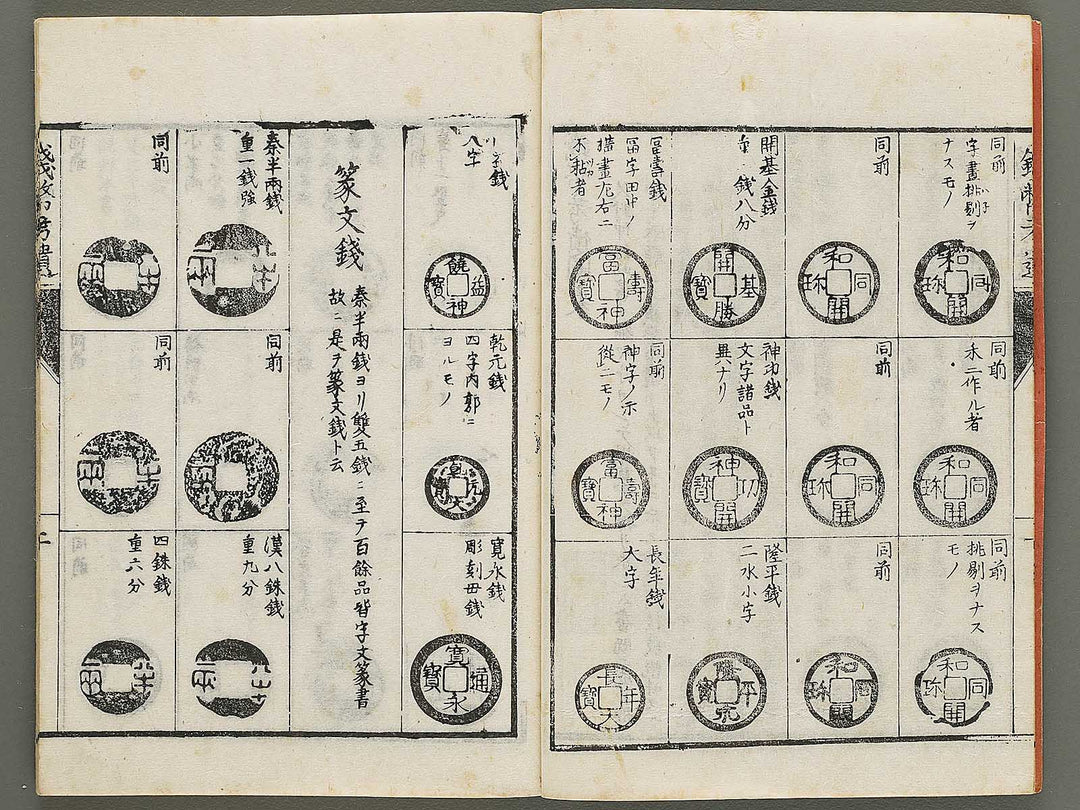 同前
字畫挑剔ヲ
ナスモノ
和同開珎
同前
禾二作ル者
和同開珎
同前
挑剔ヲナス
モノ
和同開珎
同前
和同開珎
同前
和同開珎
同前
和同開珎
開基金錢
錢八分
開基勝寶
神功錢
文字諸品ト
異ナリ
神功開寶
隆平錢
二水小字
隆平永寶
冨壽錢
冨字田中ノ
橫畫尤右ニ
不黏者
冨壽神寶
同前
神字ノ示
從ニモノ
富壽神寶
長年錢
大字
長年大寶
錢
八字
饒益神寶
乾元錢
四字内郭ニ
ヨルモノ
乾元大寶
寛永錢
彫刻母錢
寛永通寳
篆文錢
秦半兩錢ヨリ雙五錢ニ至テ百餘品皆字文篆書
故ニ是ヲ篆文錢ト云
秦半兩錢
重一錢強
半兩
同前
漢八銖錢
重九分
半兩
同前
半兩
同前
半兩
四銖錢
重六分
半兩
二